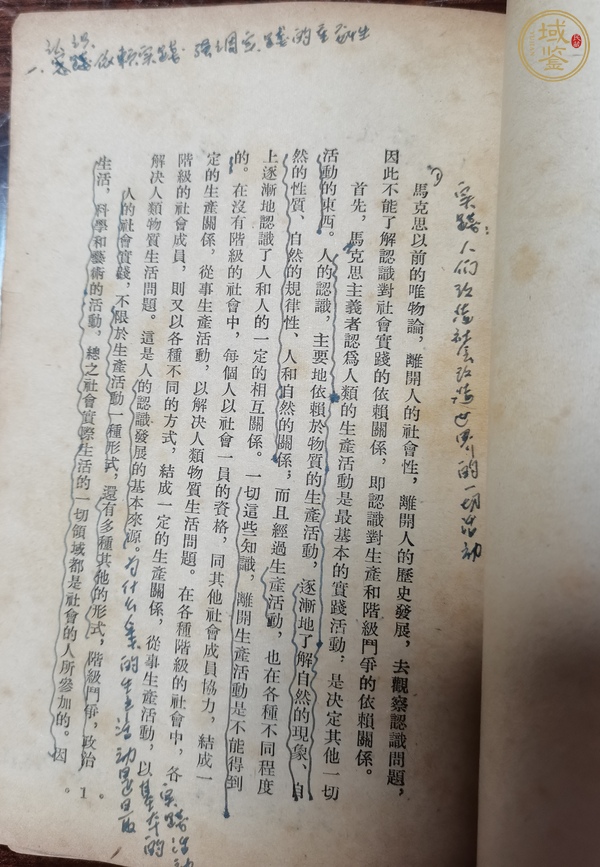 一、認識依賴實踐 强調实踐的重要性
实踐：人们改造社会改造世界的一切活动
馬克思以前的唯物論，離開人的社會性，離開人的歷史發展，去觀察認識問題，
因此不能了解認識對社會實踐的依賴關係，即認識對生產和階級鬥爭的依賴關係。
首先，馬克思主義者認爲人類的生產活動是最基本的實踐活動，是決定其他一切
活動的東西。人的認識，主要地依賴於物質的生產活動，逐漸地了解自然的現象、自
然的性質、自然的規律性、人和自然的關係；而且經過生產活動，也在各種不同程度
上逐漸地認識了人和人的一定的相互關係。一切這些知識，離開生產活動是不能得到
的。在沒有階級的社會中，每個人以社會一員的資格，同其他社會成員協力，結成一
定的生產關係，從事生產活動，以解決人類物質生活問題。在各種階級的社會中，各
階級的社會成員，則又以各種不同的方式，結成一定的生產關係，從事生產活動，以
解決人類物質生活問題。這是人的認識發展的基本來源。
为什么
的生产活动是最
基本的
实踐活动
人的社會實踐，不限於生產活動一種形式，還有多種其他的形式，階級鬥爭，政治
生活，科學和藝術的活動，總之社會實際生活的一切領域都是社會的人所參加的。因
1
域鉴